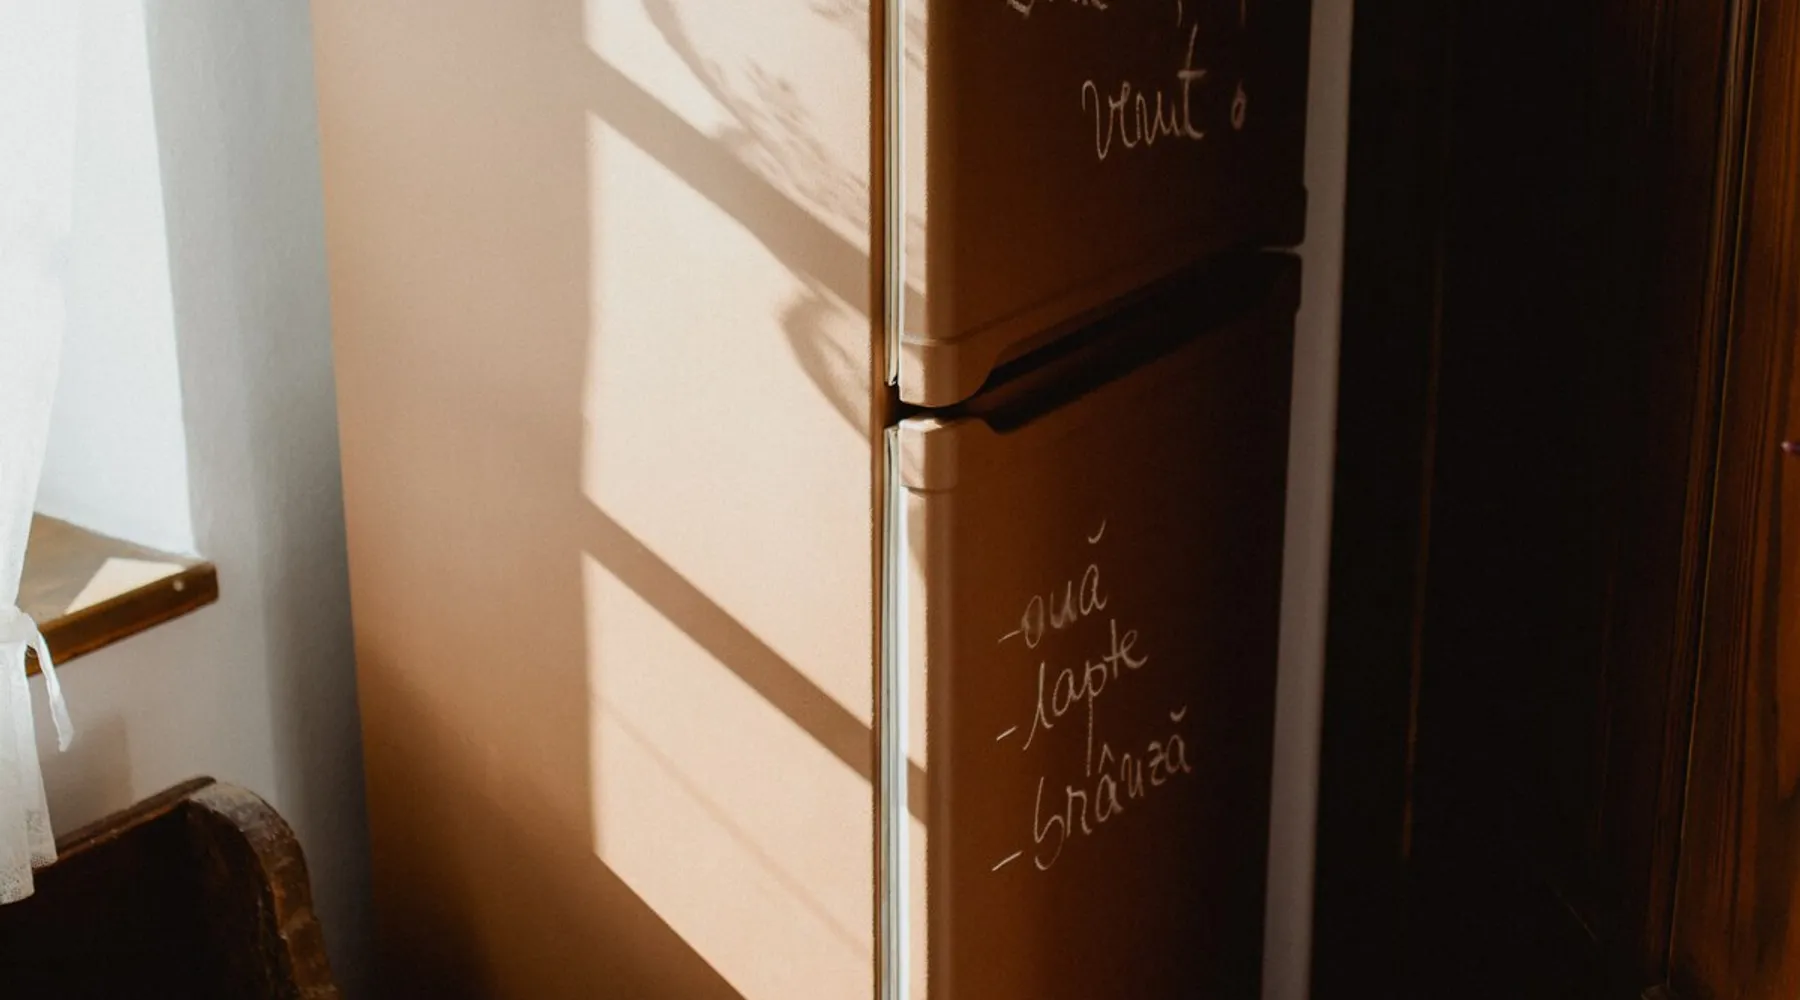 venit
-ouă
-lapte
-brânză